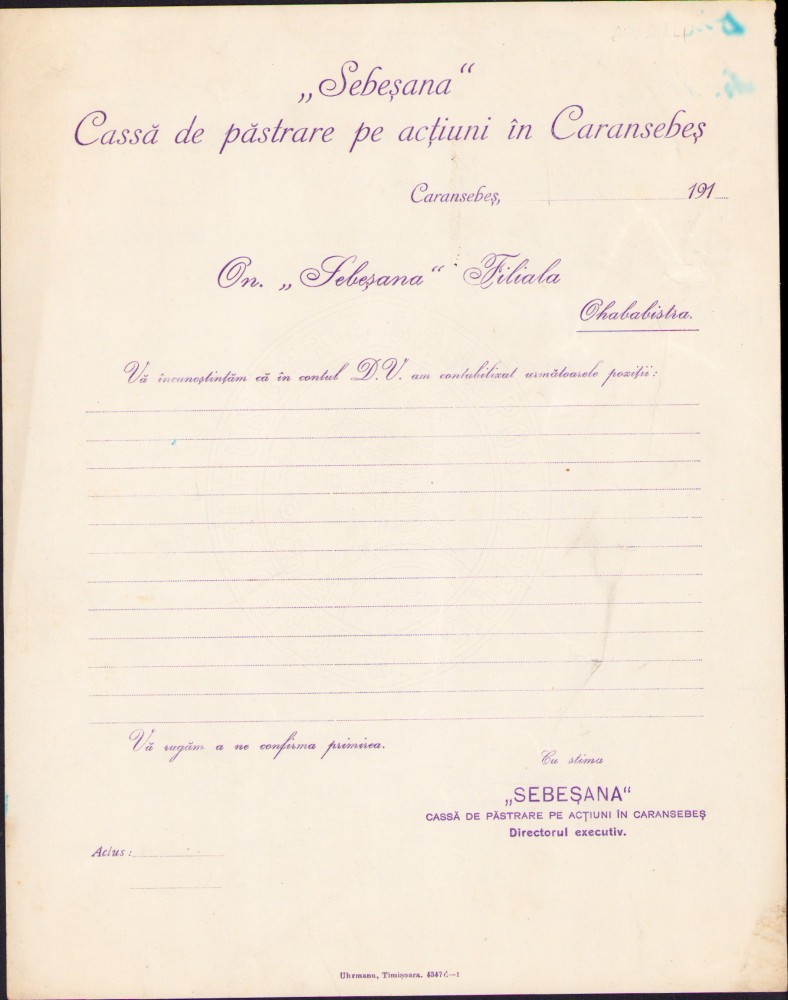 „Sebeșana“
Cassă de păstrare pe acțiuni în Caransebeș
Caransebeș, 191
On. „Sebeșana“ Filiala
Ohababistra.
Vă încunoștințăm că în contul D.V. am contabilizat următoarele poziții:
Vă rugăm a ne confirma primirea.
Cu stima
„SEBEȘANA“
CASSĂ DE PĂSTRARE PE ACȚIUNI ÎN CARANSEBEȘ
Directorul executiv.
Aclus:
Uhrmann, Timișoara.